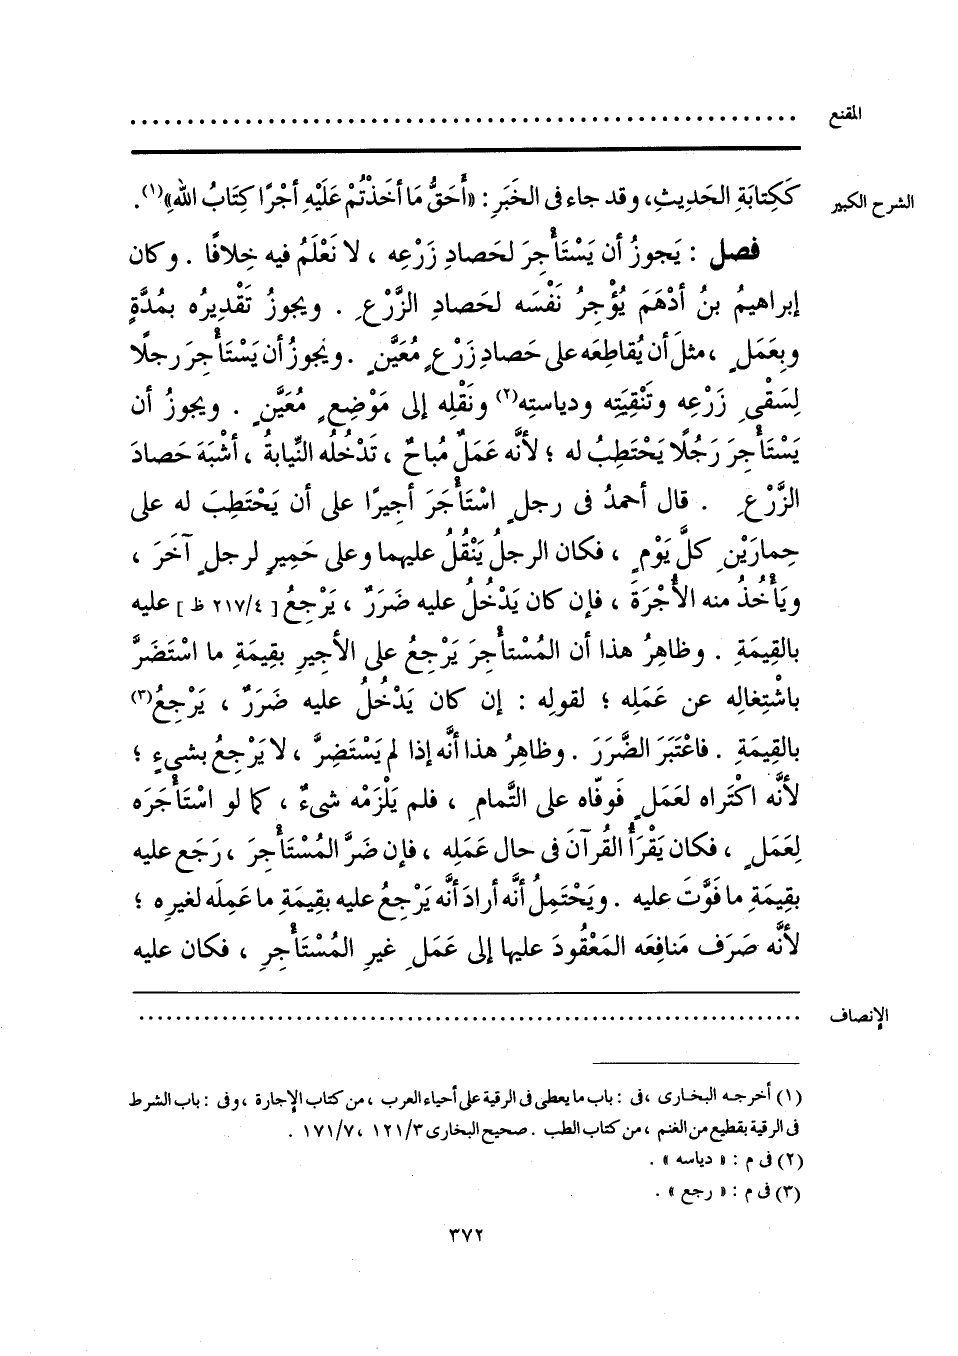 المقنع ..........................................................
الشرح الكبير كَكِتابَةِ الحَدِيثِ، وقد جاء فى الخَبَرِ : «أَحَقُّ مَا أخَذْتُمْ عَلَيْهِ أجْرًا كِتَابُ اللهِ»(١).
فصل : يَجوزُ أن يَسْتَأْجِرَ لحَصادِ زَرْعِه ، لا نَعْلَمُ فيه خِلافًا . وكان
إبراهيمُ بنُ أدْهَمَ يُؤْجِرُ نَفْسَه لحَصادِ الزَّرْعِ . ويجوزُ تَقْدِيرُه بمُدَّةٍ
وبِعَمَلٍ ، مثلَ أن يُقاطِعَه على حَصادِ زَرْعٍ مُعَيَّنٍ . ويجوزُ أن يَسْتَأْجِرَ رجلًا
لِسَقْىِ زَرْعِه وتَنْقِيَتِه ودياستِه(٢) ونَقْلِه إلى مَوْضِعٍ مُعَيَّنٍ . ويجوزُ أن
يَسْتَأْجِرَ رَجُلًا يَحْتَطِبُ له ؛ لأنَّه عَمَلٌ مُباحٌ ، تَدْخُلُه النِّيابةُ ، أشْبَهَ حَصادَ
الزَّرْعِ . قال أحمدُ فى رجلٍ اسْتَأْجَرَ أجيرًا على أن يَحْتَطِبَ له على
حِمارَيْنِ كلَّ يَوْمٍ ، فكان الرجلُ يَنْقُلُ عليهما وعلى حَمِيرٍ لرجلٍ آخَرَ ،
ويَأْخُذُ منه الأُجْرَةَ ، فإن كان يَدْخُلُ عليه ضَرَرٌ ، يَرْجِعُ [ ٢١٧/٤ ظ ] عليه
بالقِيمَةِ . وظاهِرُ هذا أن المُسْتأْجِرَ يَرْجِعُ على الأجيرِ بقِيمَةِ ما اسْتَضَرَّ
باشْتِغالِه عن عَمَلِه ؛ لقولِه : إن كان يَدْخُلُ عليه ضَرَرٌ ، يَرْجِعُ(٣)
بالقِيمَةِ . فاعْتَبَرَ الضَّرَرَ . وظاهِرُ هذا أنَّه إذا لم يَسْتَضِرَّ ، لا يَرْجِعُ بشىءٍ ؛
لأنَّه اكْتَراه لعَمَلٍ فوفّاه على التَّمامِ ، فلم يَلْزَمْه شىءٌ ، كما لو اسْتَأْجَرَه
لِعَمَلٍ ، فكان يَقْرَأُ القُرآنَ فى حال عَمَلِه ، فإن ضَرَّ المُسْتَأْجِرَ ، رَجَع عليه
بقِيمَةِ ما فَوَّتَ عليه . ويَحْتَمِلُ أنَّه أرادَ أنَّه يَرْجِعُ عليه بقِيمَةِ ما عَمِلَه لغيرِه ؛
لأنَّه صَرَف مَنافِعَه المَعْقُودَ عليها إلى عَمَلِ غيرِ المُسْتَأْجِرِ ، فكان عليه
الإنصاف ..........................................................
(١) أخرجه البخارى ، فى : باب ما يعطى فى الرقية على أحياء العرب ، من كتاب الإجارة ، وفى : باب الشرط
فى الرقية بقطيع من الغنم ، من كتاب الطب . صحيح البخارى ١٢١/٣ ، ١٧١/٧ .
(٢) فى م : « دياسه » .
(٣) فى م : « رجع » .
٣٧٢